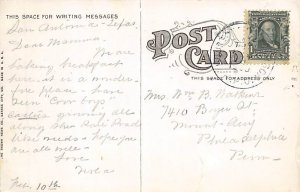 THIS SPACE FOR WRITING MESSAGES
POST CARD
THIS SPACE FOR ADDRESS ONLY
San Antonio - Texas
Dear Mamma,
We are
taking breakfast
here. it is a wonder-
ful place - have
seen "Cow boys"
growing all
along the Rail Roads
like weeds - hope you
are all well
Love
Feb. 10th
Mrs. Wm B. Watkins
7410 Boyer St
Mount Airy
Philadelphia
Penn